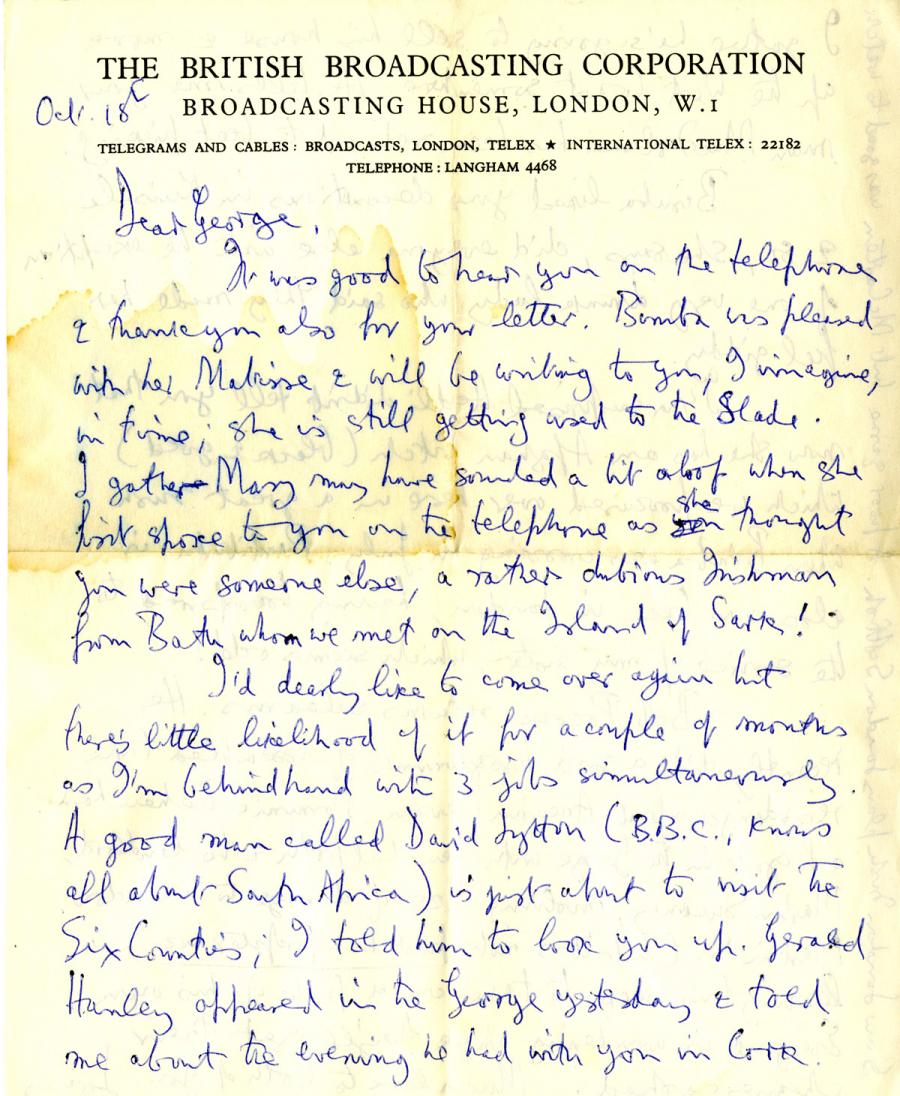 THE BRITISH BROADCASTING CORPORATION
BROADCASTING HOUSE, LONDON, W.1
Oct. 18th
TELEGRAMS AND CABLES: BROADCASTS, LONDON, TELEX ★ INTERNATIONAL TELEX: 22182
TELEPHONE: LANGHAM 4468
Dear George,
It was good to hear you on the telephone
& thankyou also for your letter. Bimba was pleased
with her Matisse & will be writing to you, I imagine,
in time; she is still getting used to the Slade.
I gather Mary may have sounded a bit aloof when she
first spoke to you on the telephone as she thought
you were someone else, a rather dubious Irishman
from Bath whom we met on the Island of Sark!
I'd dearly like to come over again but
there's little likelihood of it for a couple of months
as I'm behindhand with 3 jobs simultaneously.
A good man called David Lytton (B.B.C., knows
all about South Africa) is just about to visit the
Six Counties; I told him to look you up. Gerald
Hanley appeared in the George yesterday & told
me about the evening he had with you in Cork.